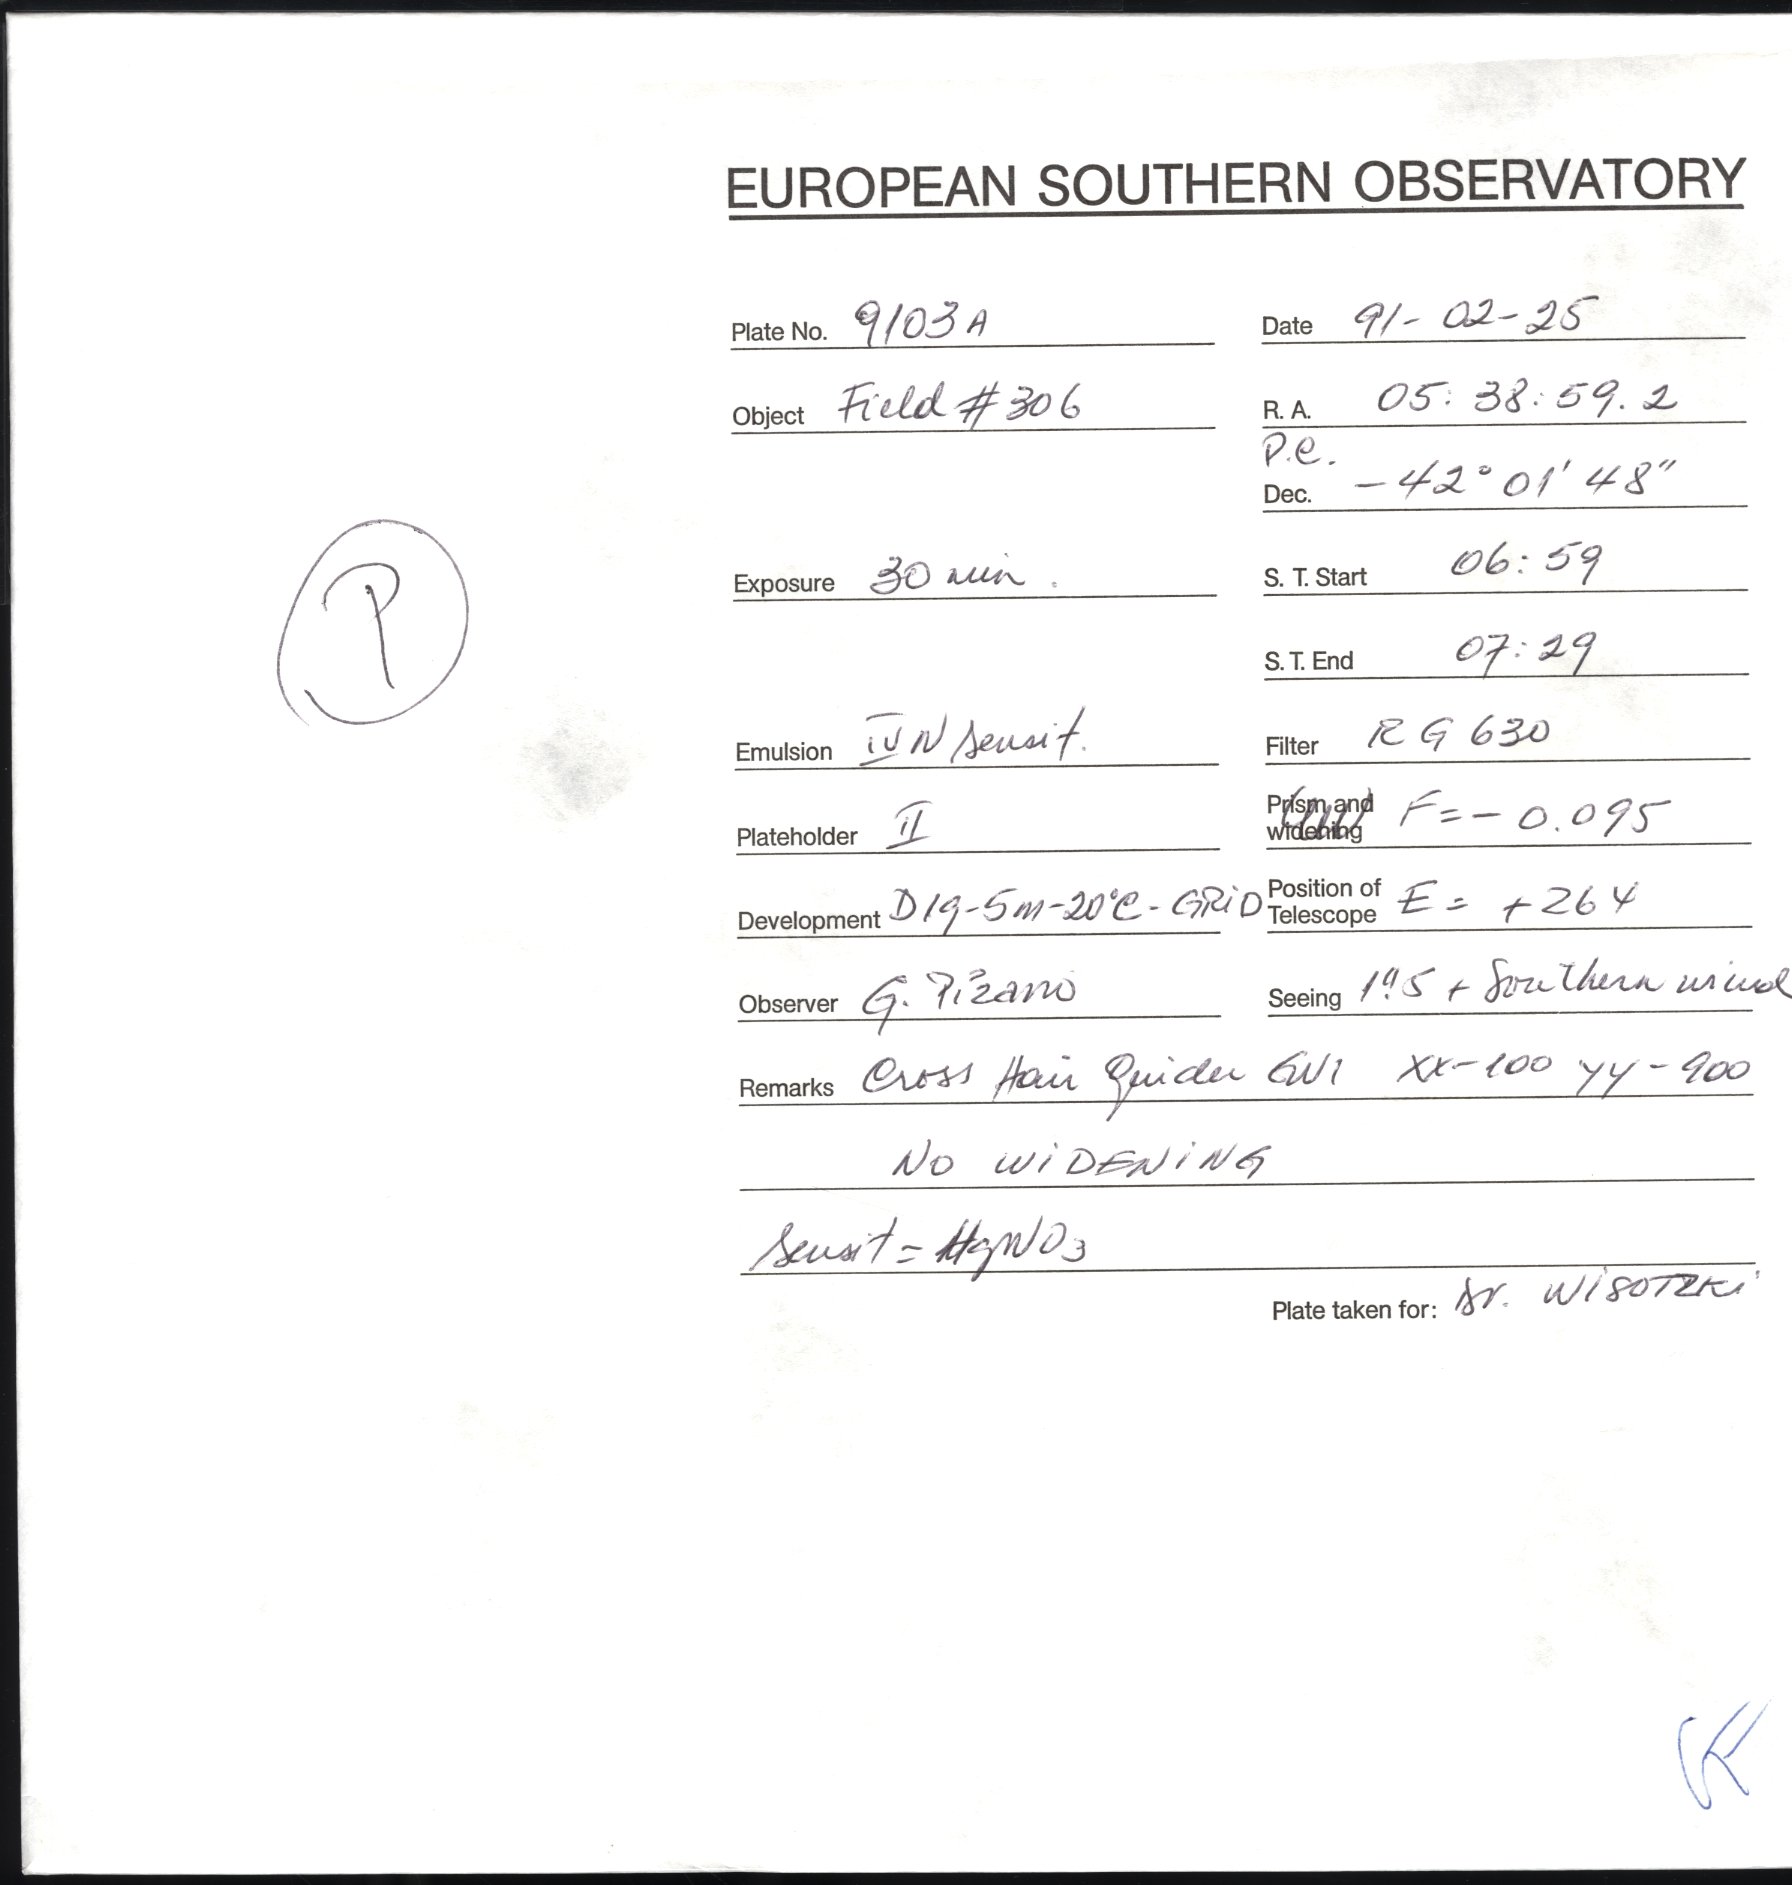 EUROPEAN SOUTHERN OBSERVATORY
Plate No. 9103A Date 91-02-25
Object Field #306 R. A. 05:38:59.2
P.C.
Dec. -42° 01' 48"
P
Exposure 30 min. S. T. Start 06:59
S. T. End 07:29
Emulsion IV N sensit. Filter RG 630
Prism and widening F=-0.095
Plateholder II
Development D19-5m-20°C-GRiD Position of Telescope E= +264
Observer G. Pizarro Seeing 1".5 + Southern wind
Remarks Cross Hair Guider GW1 XX-100 YY-900
NO WiDENiNG
Sensit = AgNO3
Plate taken for: Dr. WiSOTZKi